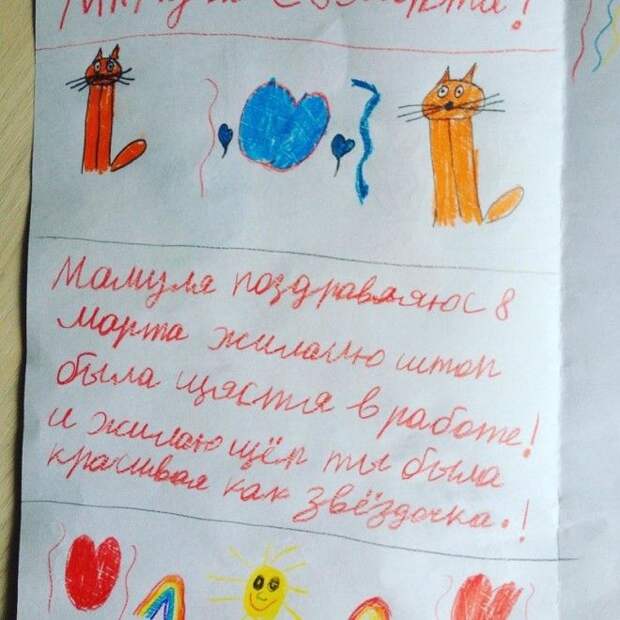 с 8 марта!
Мамуля поздравляю с 8
Марта жилаылю штоп
была щястя в работе!
и жилаю щёп ты была
красивая как звёздочка.!